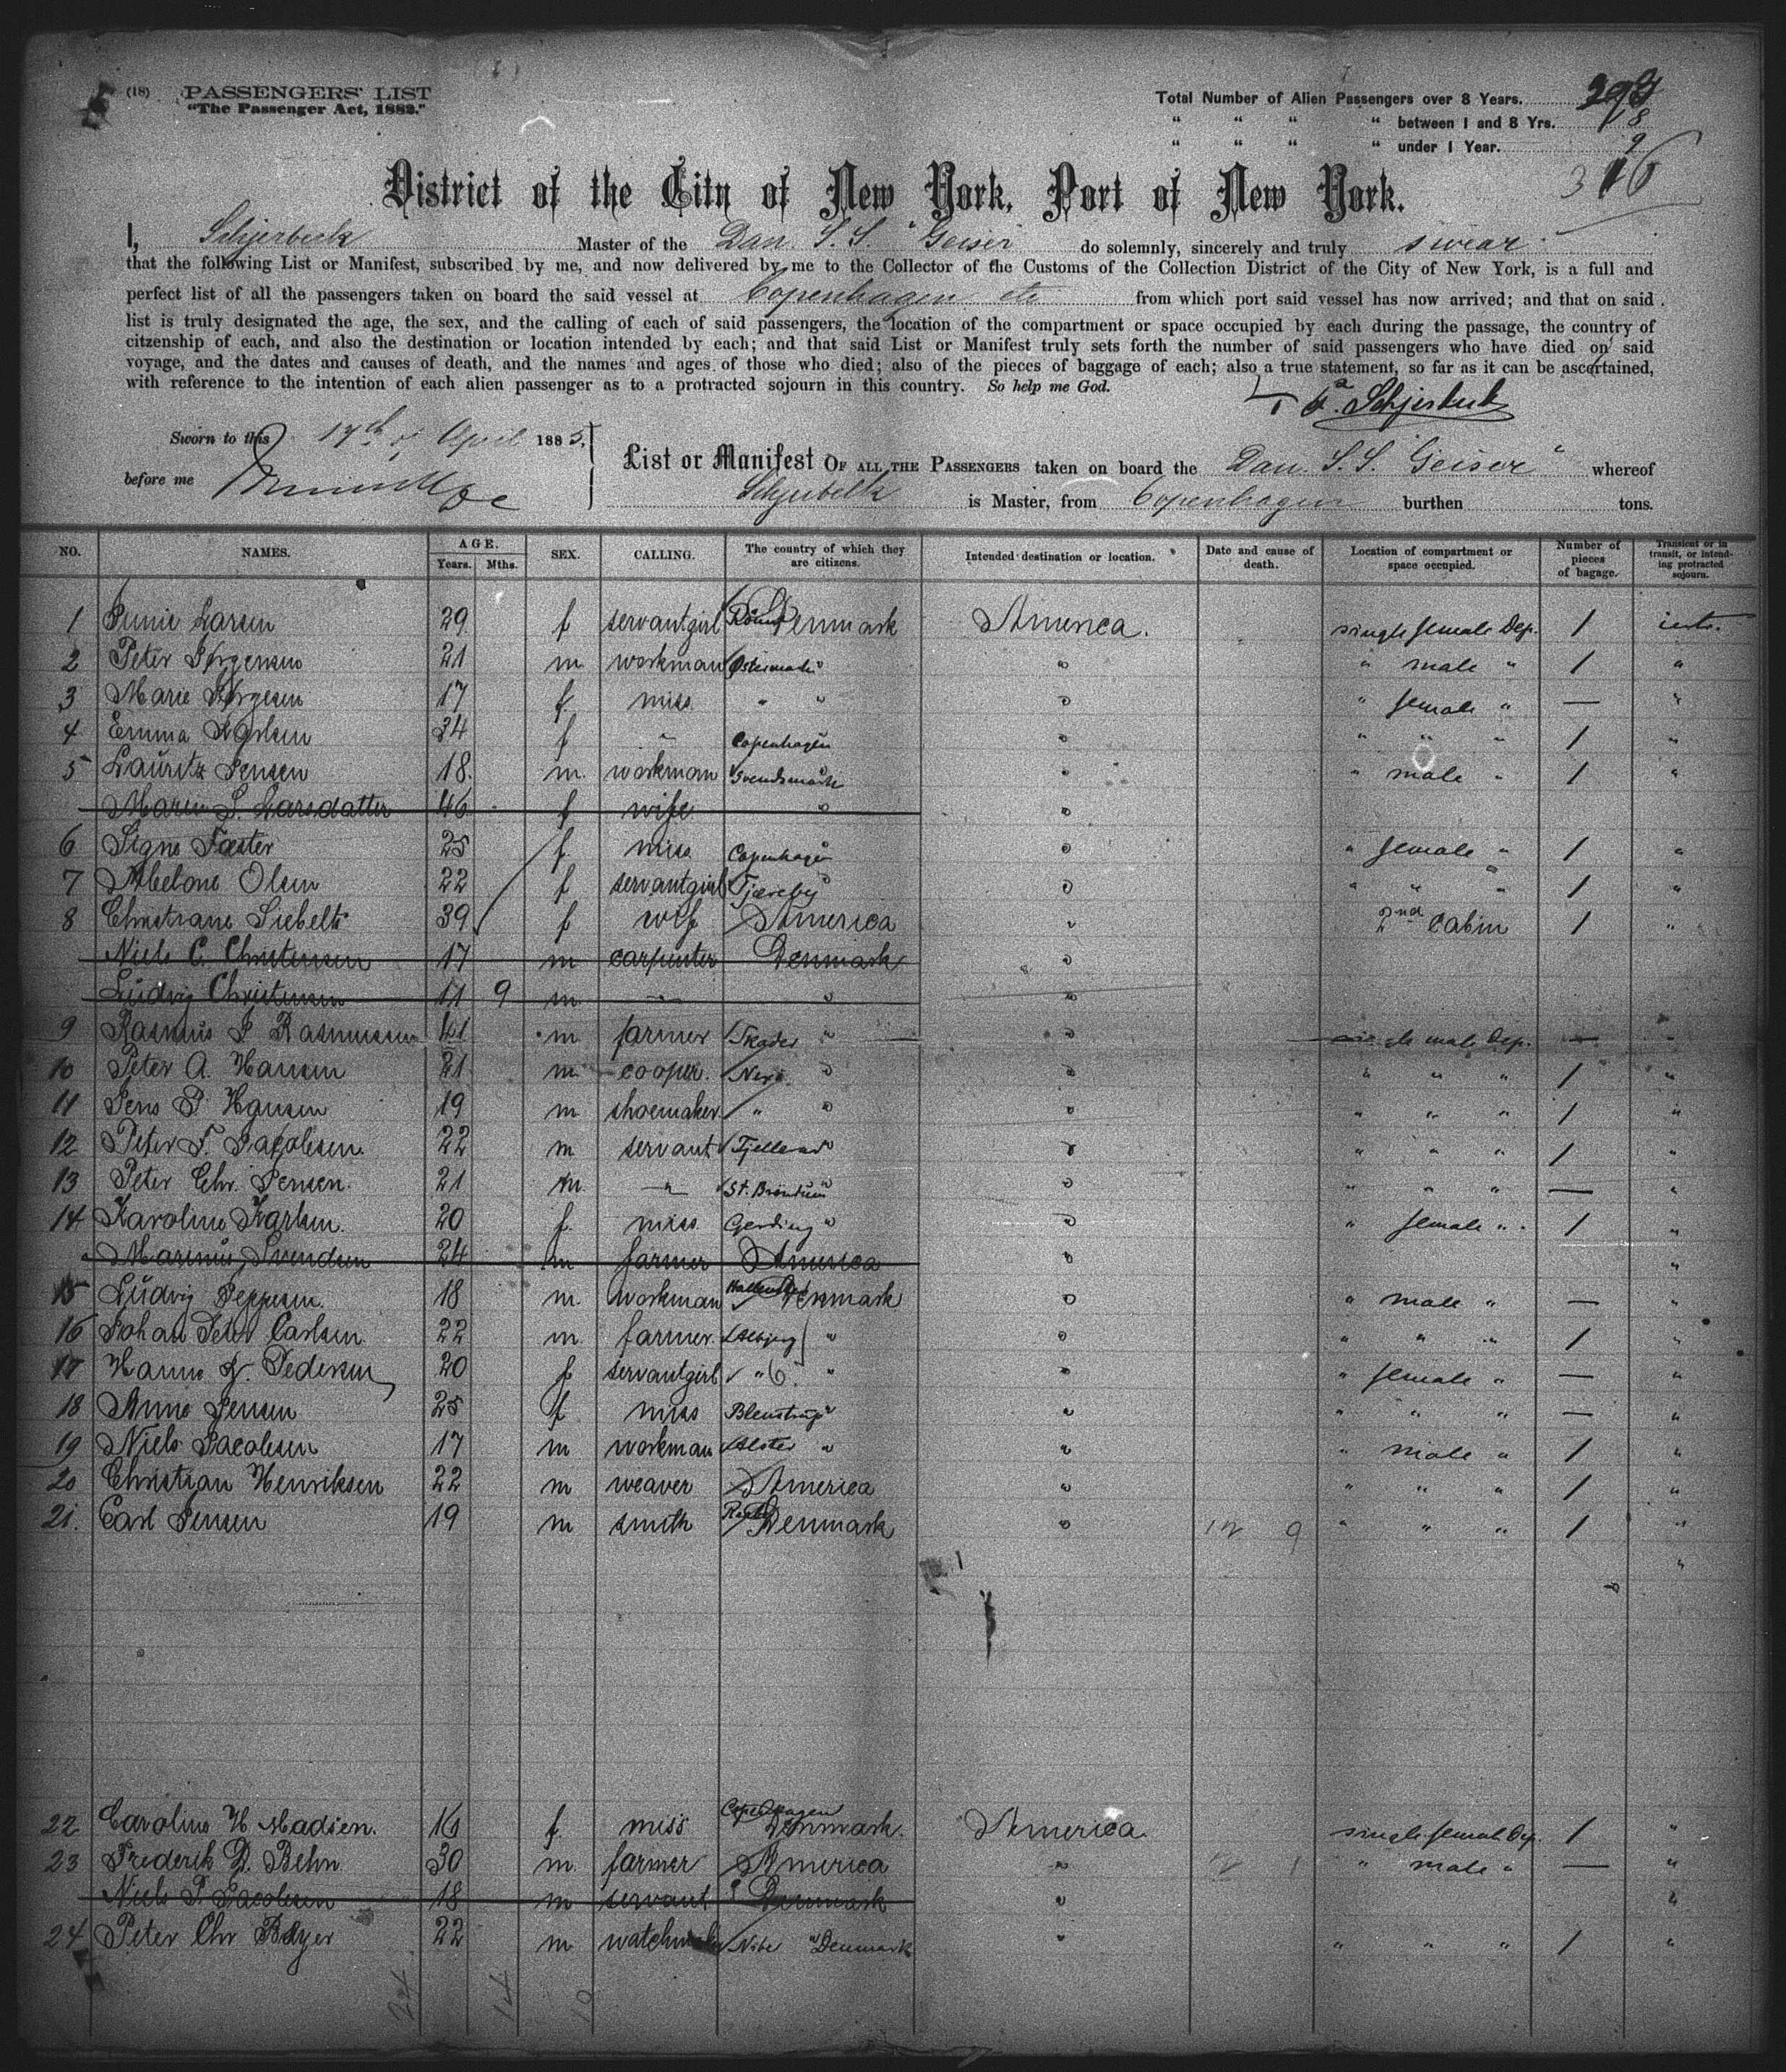 (18) PASSENGERS' LIST
"The Passenger Act, 1882."
Total Number of Alien Passengers over 8 Years.
" " " " between 1 and 8 Yrs. 18
" " " " under 1 Year. 9
316
District of the City of New York, Port of New York.
I, Schjerbeck Master of the Dan. S. S. "Geiser" do solemnly, sincerely and truly swear
that the following List or Manifest, subscribed by me, and now delivered by me to the Collector of the Customs of the Collection District of the City of New York, is a full and
perfect list of all the passengers taken on board the said vessel at Copenhagen etc from which port said vessel has now arrived; and that on said
list is truly designated the age, the sex, and the calling of each of said passengers, the location of the compartment or space occupied by each during the passage, the country of
citzenship of each, and also the destination or location intended by each; and that said List or Manifest truly sets forth the number of said passengers who have died on said
voyage, and the dates and causes of death, and the names and ages of those who died; also of the pieces of baggage of each; also a true statement, so far as it can be ascertained,
with reference to the intention of each alien passenger as to a protracted sojourn in this country. So help me God.
Schjerbeck
Sworn to this 17th of April 1885,
before me
List or Manifest OF ALL THE PASSENGERS taken on board the Dan. S. S. "Geiser" whereof
Schjerbeck is Master, from Copenhagen burthen tons.
NO. NAMES. AGE. Years. Mths. SEX. CALLING. The country of which they are citizens. Intended destination or location. Date and cause of death. Location of compartment or space occupied. Number of pieces of bagage. Transient or in transit, or intending protracted sojourn.
1 Larsen 29 f servantgirl Rönne Denmark America. single female Dep. 1
2 Peter Jörgensen 21 m workman Östermarie " " " male " 1 "
3 Marie Jörgesen 17 f. miss " " " " female " — "
4 Emma Karlsen 34 f " Copenhagen " " " " " 1 "
5 Lauritz Jensen 18. m. workman Svendsmark " " " male " 1 "
Maren S. Larsdatter 46 f wife " "
6 Signe Fæster 25 f. miss Copenhagen " " " female " 1 "
7 Abelone Olsen 22 f servantgirl Tjæreby " " " " " 1 "
8 Christiane Siebelts 39 f wife America " 2nd Cabin 1 "
Niels C. Christensen 17 m carpenter Denmark "
Ludvig Christensen 11 9 m " " "
9 Rasmus P Rasmussen 41 m farmer Skader " " single male Dep. — "
10 Peter A. Hansen 21 m cooper. " " " " " 1 "
11 Jens P. Hansen 19 m shoemaker " " " " " " 1 "
12 Peter F. Jacobsen. 22 m servant Fjellerad " " " " " 1 "
13 Peter Chr. Jensen. 21 m. " St. Bröndum " " " " " — "
14 Karoline Karlsen. 20 f. miss Gerding " " " female " 1 "
Marinus Svendsen 24 m farmer America " "
15 Ludvig Jeppesen. 18 m. workman Denmark " " male " — "
16 Johan Peter Carlsen 22 m. farmer. Albjerg " " " " " 1 "
17 Hanne K. Pedersen 20 f servantgirl " " " " female " — "
18 Anne Jensen 25 f. miss Blenstrup " " " " " — "
19 Niels Jacobsen 17 m workman Alster " " " male " 1 "
20 Christian Henriksen 22 m weaver America " " " " 1 "
21. Carl Jensen 19 m smith Denmark " 12 9 " " " 1 "
22 Caroline H Madsen. 16 f. miss Copenhagen Denmark. America. single female Dep. 1 "
23 Frederik D. Behn 30 m. farmer America " 12 1 " male " — "
Niels P. Jacobsen 18 m servant Denmark " "
24 Peter Chr Beyer 22 m Nibe " Denmark " " " " 1 "
24 14 10